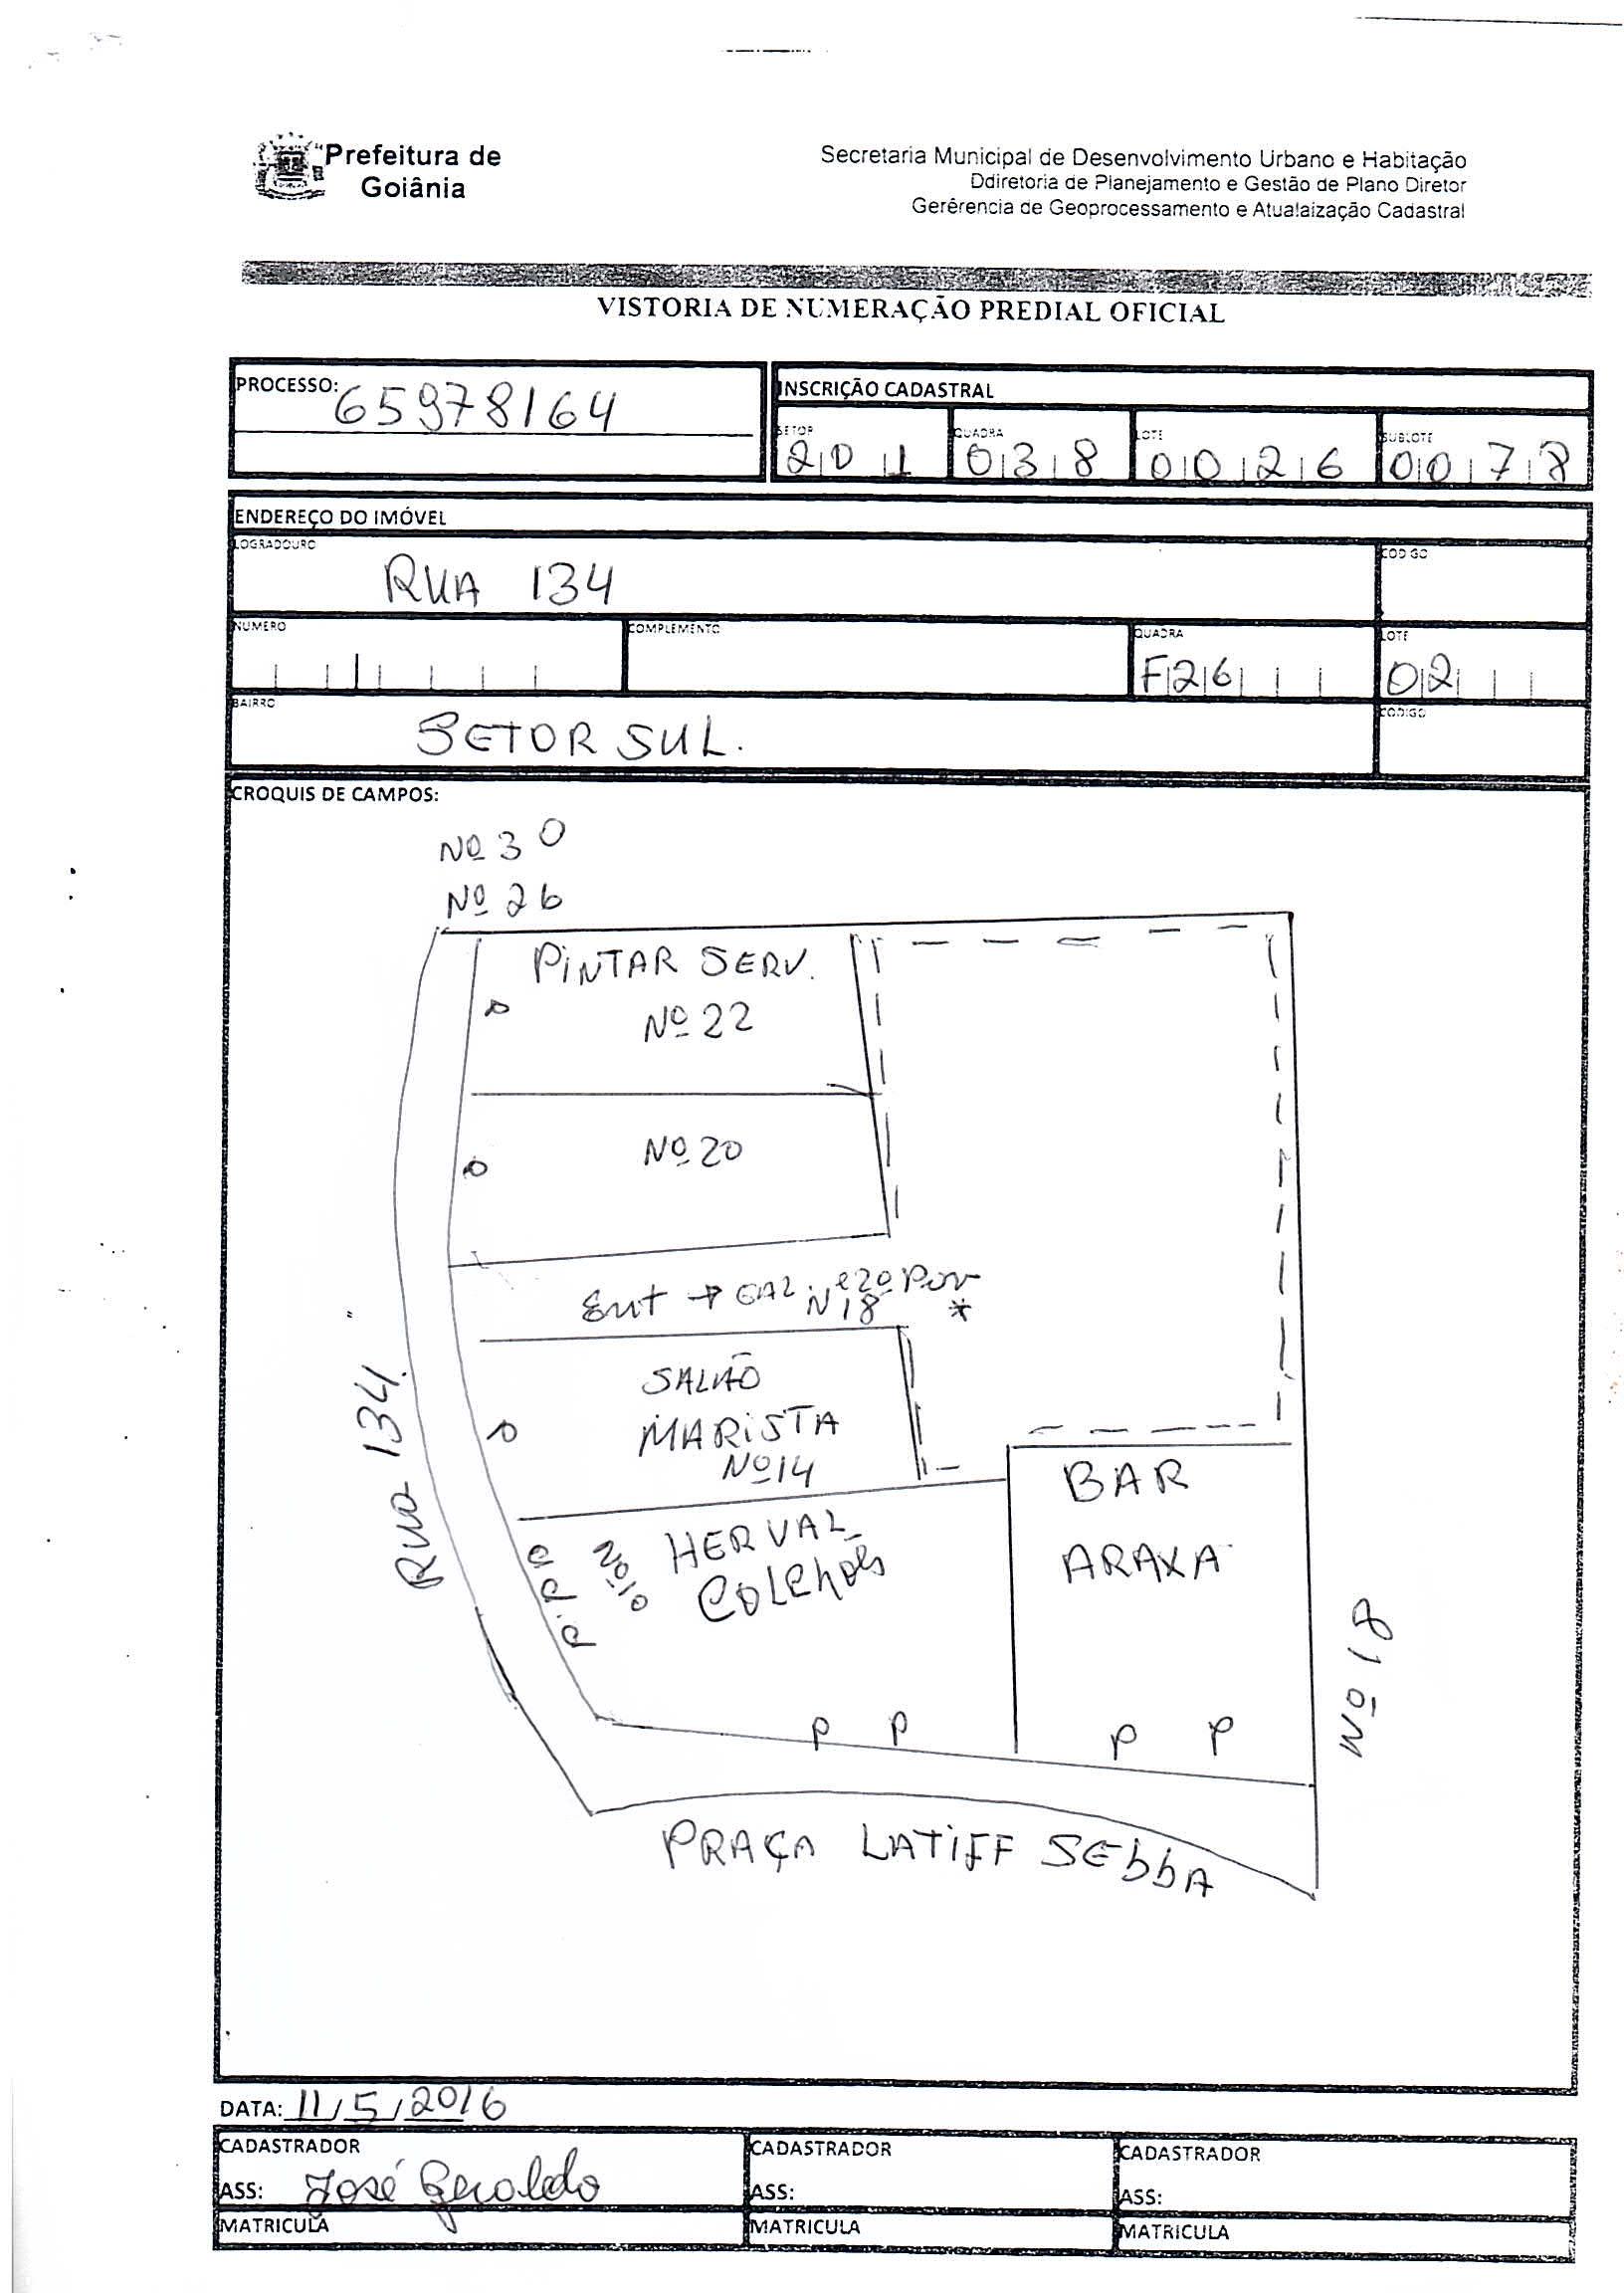 Prefeitura de
Goiânia
Secretaria Municipal de Desenvolvimento Urbano e Habitação
Ddiretoria de Planejamento e Gestão de Plano Diretor
Gerêrencia de Geoprocessamento e Atualaização Cadastral
VISTORIA DE NUMERAÇÃO PREDIAL OFICIAL
PROCESSO: 65978164
INSCRIÇÃO CADASTRAL
SETOR QUADRA LOTE SUBLOTE
201 038 0026 0078
ENDEREÇO DO IMÓVEL
LOGRADOURO CODIGO
RUA 134
NUMERO COMPLEMENTO QUADRA LOTE
F26 02
BAIRRO CODIGO
SETOR SUL.
CROQUIS DE CAMPOS:
Nº 30
Nº 26
PINTAR SERV.
Nº 22
Nº 20
Ent → GAL e 2º Pav
N 18 *
SALÃO
MARISTA
Nº 14
Rua 134
Nº 10
HERVAL
COLChões
BAR
ARAXA
Nº 18
P P P P
PRAÇA LATIFF SEbbA
DATA: 11/5/2016
CADASTRADOR CADASTRADOR CADASTRADOR
ASS: José Geraldo ASS: ASS:
MATRICULA MATRICULA MATRICULA